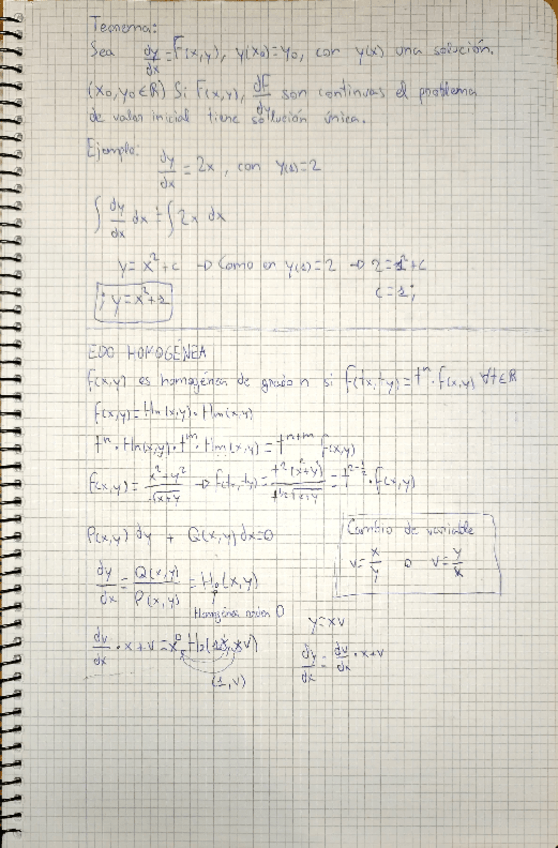 Teorema:
Sea dy/dx = F(x,y), y(x0)=y0, con y(x) una solución.
(x0,y0 ∈ R) Si F(x,y), dF/dy son continuas el problema
de valor inicial tiene solución única.
Ejemplo: dy/dx = 2x, con y(1)=2
∫ dy/dx dx = ∫ 2x dx
y = x² + c → Como en y(1)=2 → 2 = 1² + c
c = 1;
; y = x² + 1
EDO HOMOGÉNEA
f(x,y) es homogénea de grado n si f(tx,ty) = tⁿ · f(x,y) ∀t∈R
f(x,y) = Hn(x,y) · Hm(x,y)
tⁿ · Hn(x,y) · tᵐ · Hm(x,y) = tⁿ⁺ᵐ f(x,y)
f(x,y) = (x²+y²)/√(x+y) → f(tx,ty) = t²(x²+y²)/(t^(1/2) √(x+y)) = t^(2-1/2) · f(x,y)
P(x,y) dy + Q(x,y) dx = 0
Cambio de variable
v = x/y o v = y/x
dy/dx = Q(x,y)/P(x,y) = H0(x,y)
Homogénea orden 0
y = xv
dv/dx · x + v = x⁰ · H0(1x, xv)
dy/dx = dv/dx · x + v
(1, v)